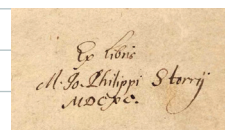 Ex libris
M. Jo. Philippi Storrij
MDCXC.